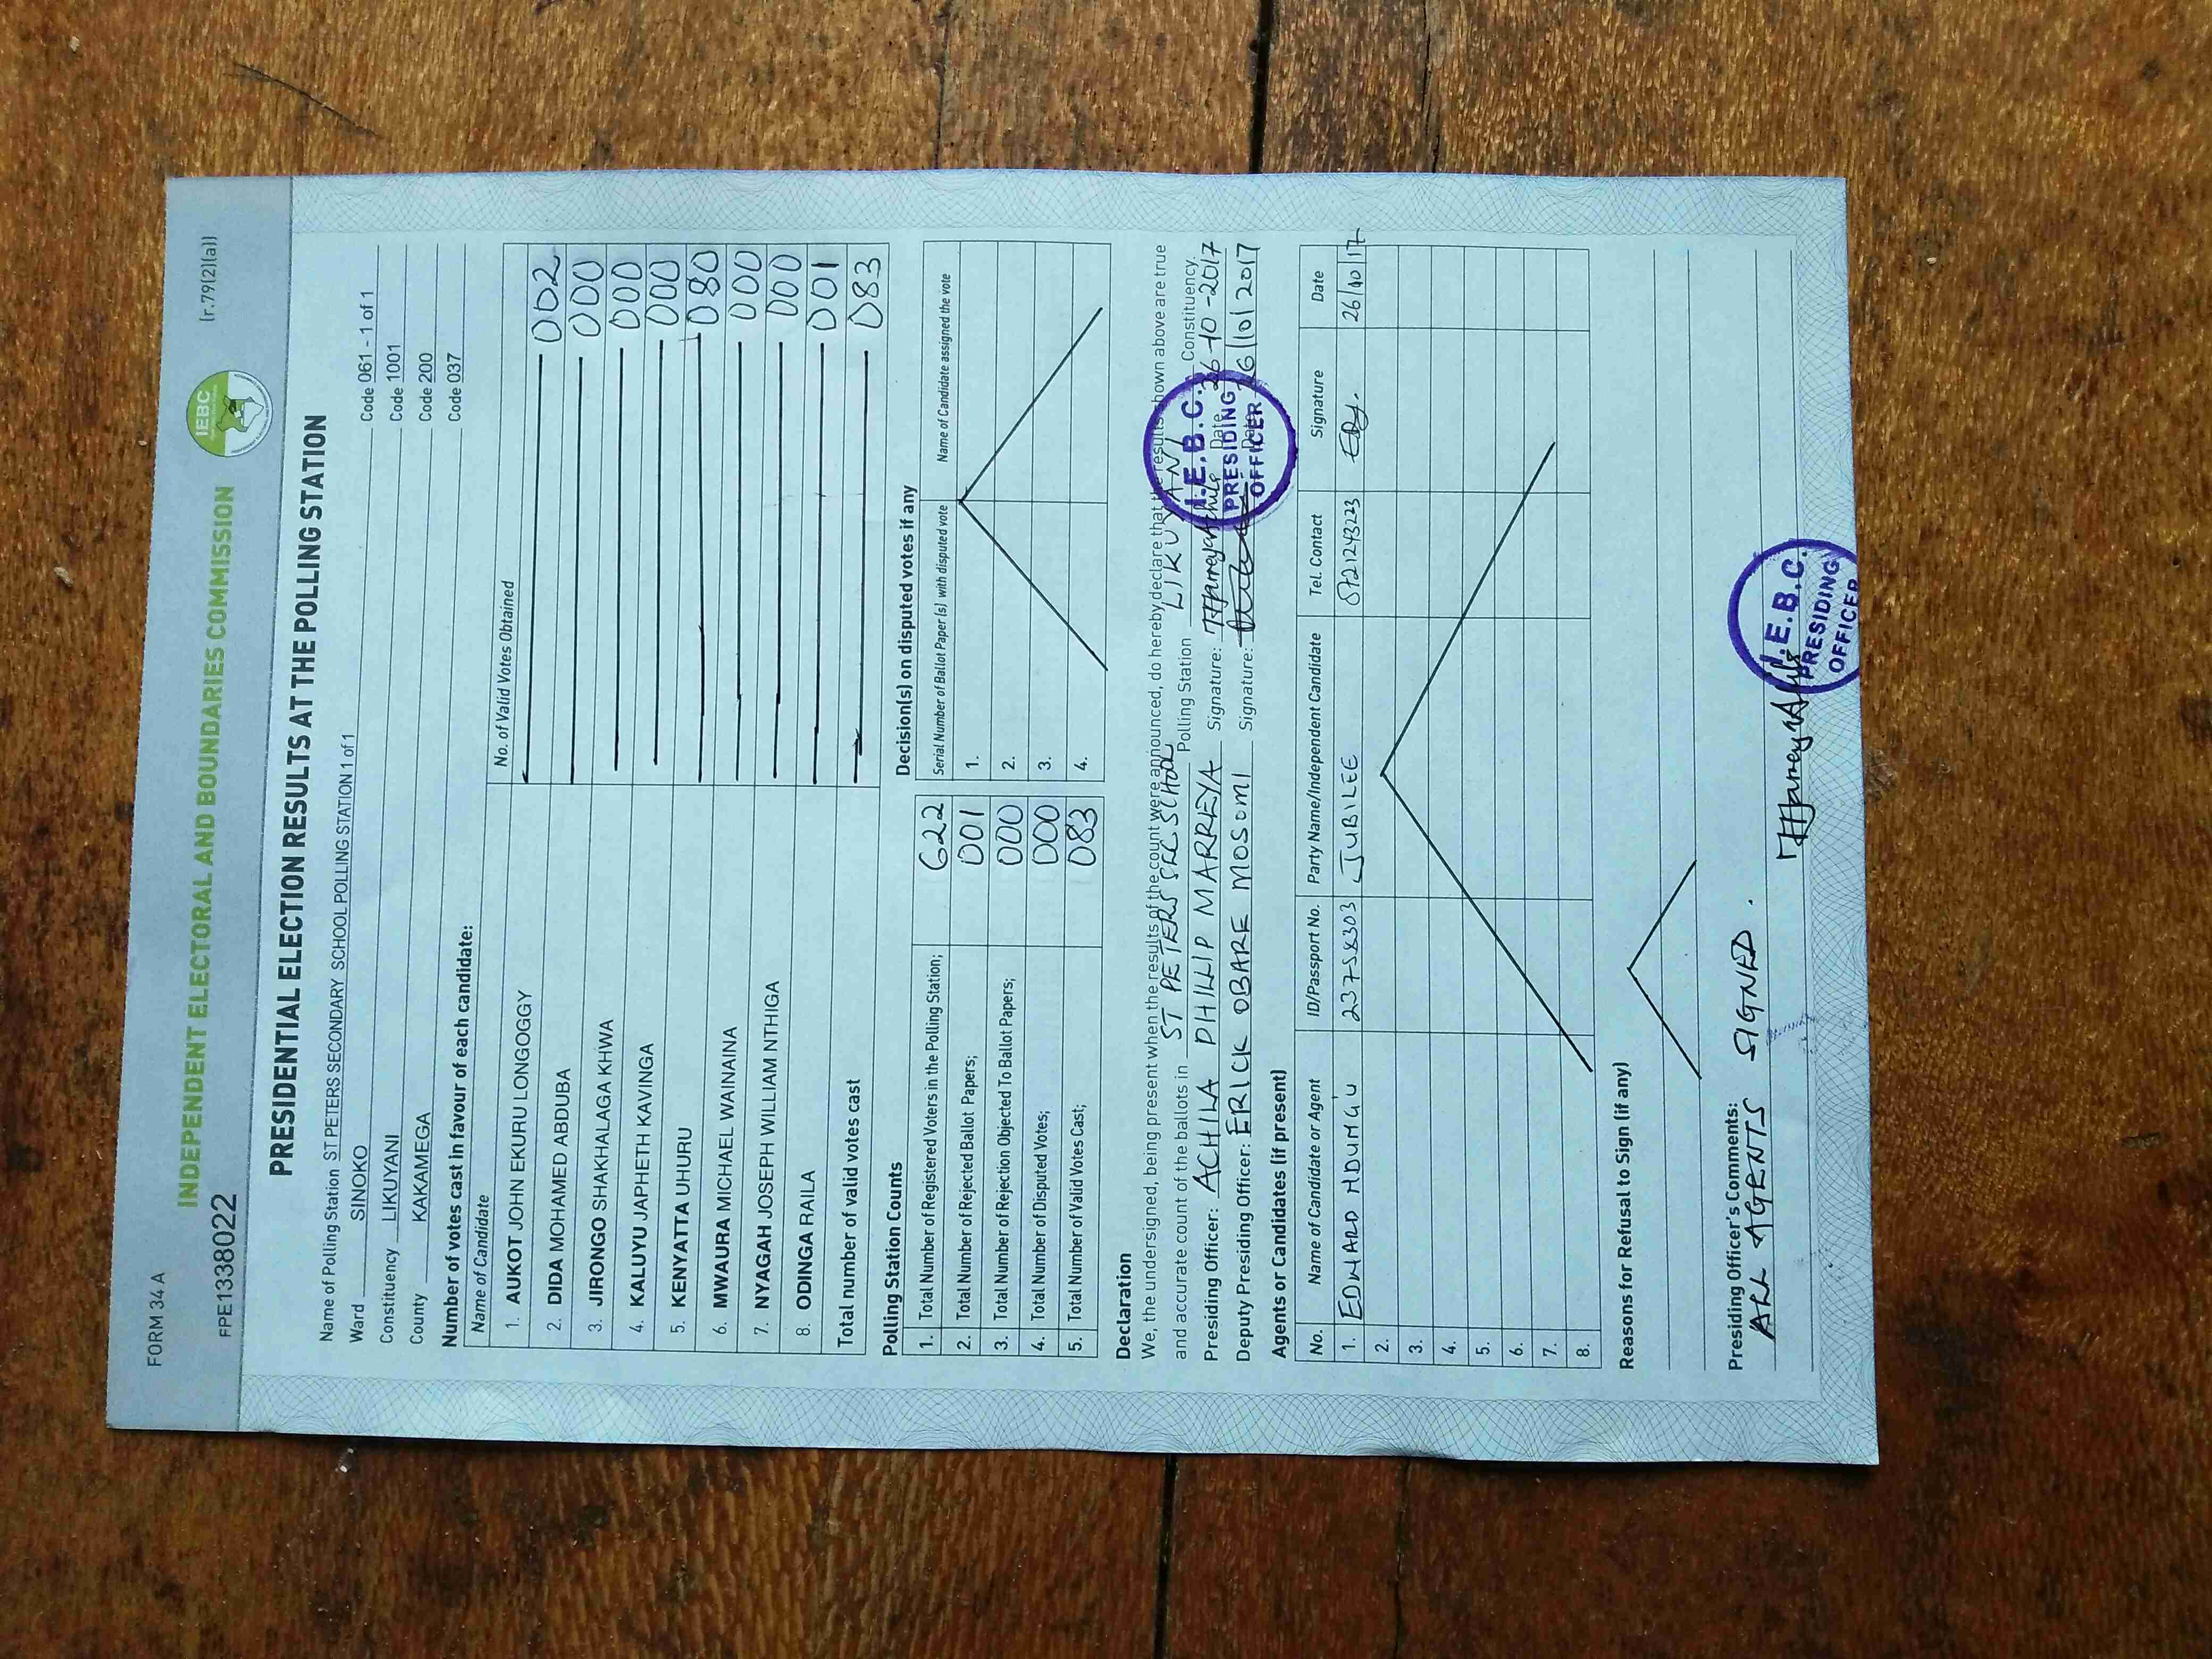 FORM 34 A
INDEPENDENT ELECTORAL AND BOUNDARIES COMMISSION
IEBC
(r.79(2)(a))
FPE1338022
PRESIDENTIAL ELECTION RESULTS AT THE POLLING STATION
Name of Polling Station ST PETERS SECONDARY SCHOOL POLLING STATION 1 of 1 Code 061 - 1 of 1
Ward SINOKO Code 1001
Constituency LIKUYANI Code 200
County KAKAMEGA Code 037
Number of votes cast in favour of each candidate:
Name of Candidate No. of Valid Votes Obtained
1. AUKOT JOHN EKURU LONGOGGY 002
2. DIDA MOHAMED ABDUBA 000
3. JIRONGO SHAKHALAGA KHWA 000
4. KALUYU JAPHETH KAVINGA 000
5. KENYATTA UHURU 080
6. MWAURA MICHAEL WAINAINA 000
7. NYAGAH JOSEPH WILLIAM NTHIGA 000
8. ODINGA RAILA 001
Total number of valid votes cast 083
Polling Station Counts
1. Total Number of Registered Voters in the Polling Station; 622
2. Total Number of Rejected Ballot Papers; 001
3. Total Number of Rejection Objected To Ballot Papers; 000
4. Total Number of Disputed Votes; 000
5. Total Number of Valid Votes Cast; 083
Decision(s) on disputed votes if any
Serial Number of Ballot Paper (s) with disputed vote Name of Candidate assigned the vote
1.
2.
3.
4.
Declaration
We, the undersigned, being present when the results of the count were announced, do hereby declare that the results shown above are true
and accurate count of the ballots in ST PETERS SEC SCHOOL Polling Station LIKUYANI Constituency.
Presiding Officer: ACHILA PHILLIP MARREYA Signature: Date 26-10-2017
Deputy Presiding Officer: ERICK OBARE MOSOMI Signature: Date 26/10/2017
I.E.B.C.
PRESIDING
OFFICER
Agents or Candidates (if present)
No. Name of Candidate or Agent ID/Passport No. Party Name/Independent Candidate Tel. Contact Signature Date
1. EDWARD NDUNG'U 23758303 JUBILEE 0721243223 26/10/17
2.
3.
4.
5.
6.
7.
8.
Reasons for Refusal to Sign (if any)
Presiding Officer's Comments:
ALL AGENTS SIGNED.
I.E.B.C.
PRESIDING
OFFICER